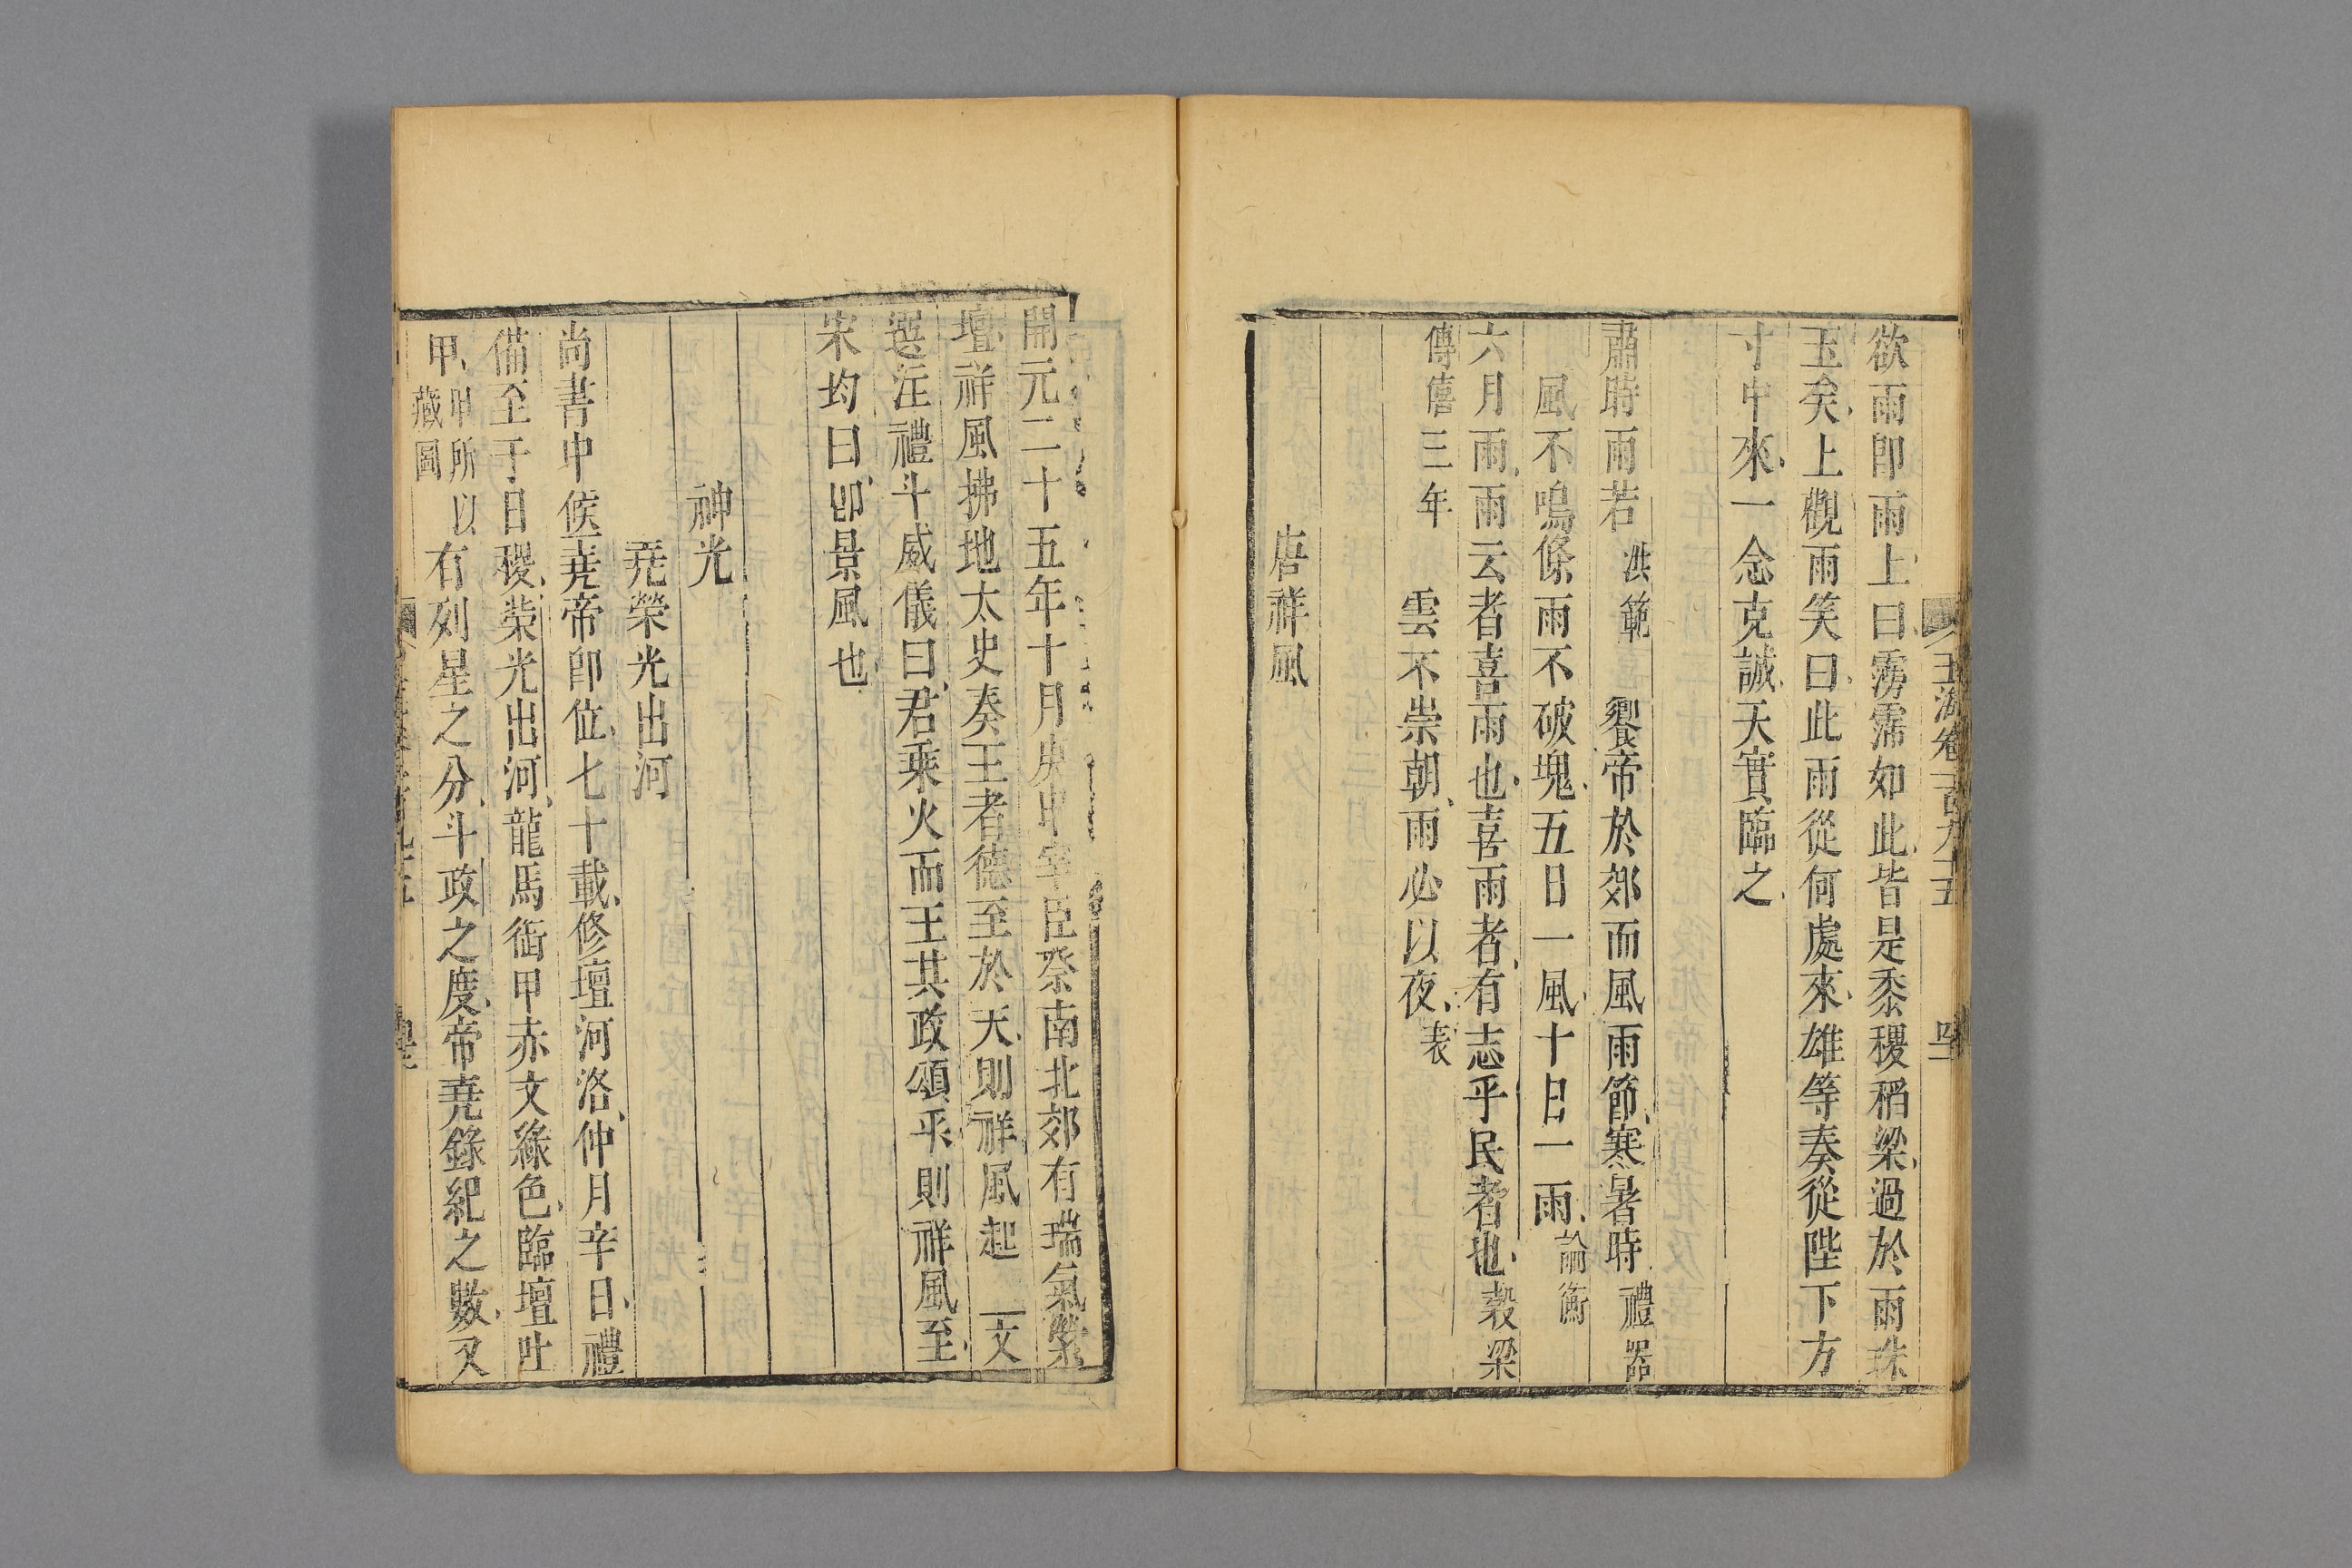 玉海卷一百九十五
欲雨卽雨上曰霶霈如此皆是黍稷稻梁過於雨珠
玉矣上觀雨笑曰此雨從何處來雄等奏從陛下方
寸中來一念克誠天實臨之
肅時雨若 洪範 饗帝於郊而風雨節寒暑時 禮器
風不鳴條雨不破塊五日一風十日一雨 論衡
六月雨雨云者喜雨也喜雨者有志乎民者也 穀梁
傳僖三年 雲不崇朝雨必以夜 表
唐祥風
開元二十五年十月庚申宰臣祭南北郊有瑞氣縈
壇祥風拂地太史奏王者德至於天則祥風起 文
選注禮斗威儀曰君乗火而王其政頌平則祥風至
宋均曰卽景風也
神光
堯榮光出河
尚書中候堯帝卽位七十載修壇河洛仲月辛日禮
備至于日稷榮光出河龍馬銜甲赤文綠色臨壇吐
甲 甲所以藏圖 有列星之分斗政之度帝堯錄紀之數又